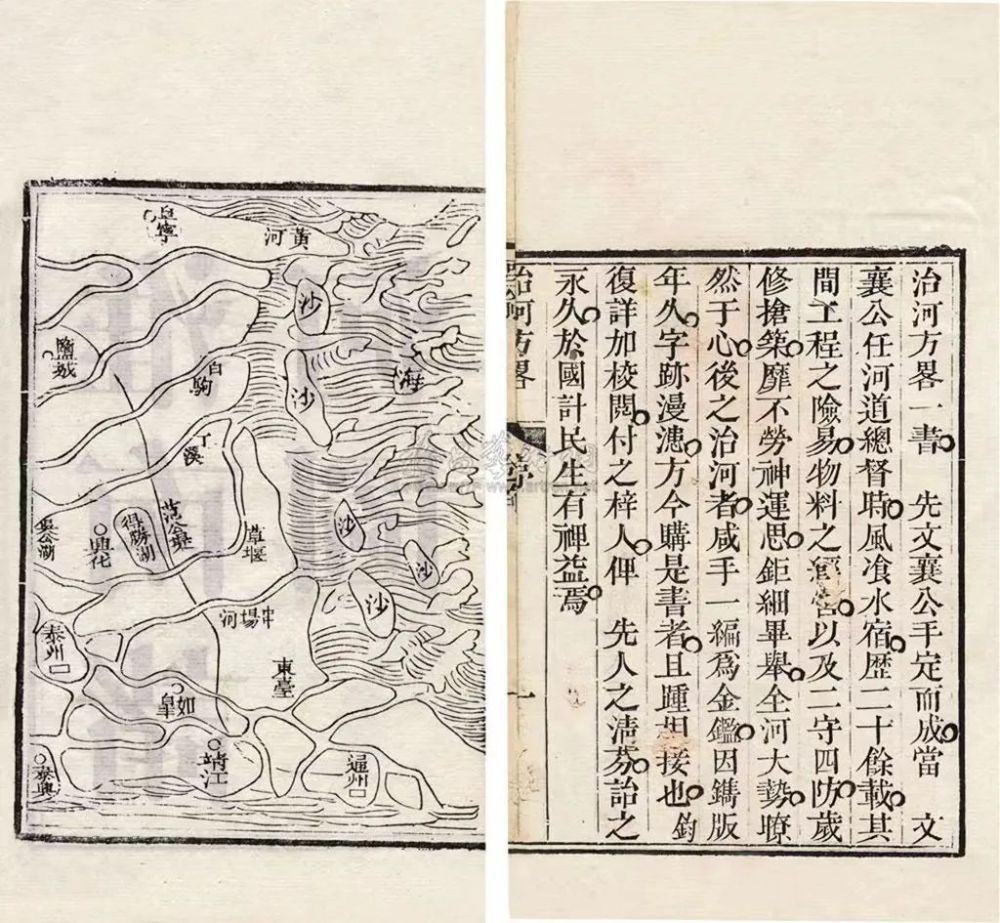 治河方畧一書 先文襄公手定而成當 文
襄公任河道總督時風飡水宿歴二十餘載其
間工程之險易物料之以及二守四防歲
修搶築靡不勞神運思鉅細畢舉全河大勢瞭
然于心後之治河者咸手一編爲金鑑因鐫版
年久字跡漫漶方今購是書者且踵相接也鈞
復詳加校閲付之梓人俾 先人之清芬詒之
永久於國計民生有裨益焉
治河方畧
序
一
黃河
阜寧
沙
沙
海
鹽城
白駒
丁溪
沙
沙
沙
范公堤
草堰
得勝湖
興化
吳公湖
串場河
東臺
泰州
如皋
通州
靖江
泰興